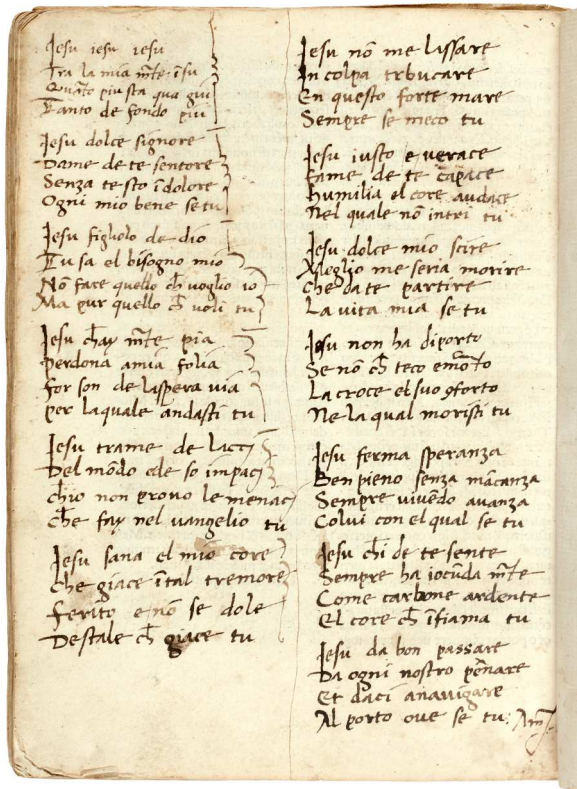 Jesu iesu iesu
Tra la mia mēte īsu
Quāto piu sta qua giu
Tanto de fondo piu
Jesu dolce signore
Dame de te sentore
Senza te sto ī dolore
Ogni mio bene se tu
Jesu figliolo de dio
Tu sa el bisogno mio
Nō fare quello ch̄ voglio io
Ma pur quello ch̄ voli tu
Jesu ch̄ay mēte pia
Perdona a mia folia
For son de laspera via
per laquale andasti tu
Jesu trame de lacci
Del mōdo e de so impaci
ch̄io non provo le menaci
Che fay nel vangelio tu
Jesu sana el mio core
che giace ī tal tremore
ferito e nō se dole
Destalo ch̄ giace tu
Jesu nō me lassare
In colpa trbucare
En questo forte mare
Sempre se meco tu
Jesu iusto e verace
Fame de te cāpace
humilia el core audace
Nel quale nō intri tu
Jesu dolce mio scire
Meglio me seria morire
che da te partire
La vita mia se tu
Jesu non ha diporto
Se nō ch̄ teco e mōto
La croce el suo ꝯforto
Ne la qual moristi tu
Jesu ferma speranza
Ben pieno senza mācanza
Sempre vivēdo avanza
Colui con el qual se tu
Jesu chi de te sente
Sempre ha iocūda mēte
Come carbone ardente
El core ch̄ īfiama tu
Jesu da bon passare
Da ogni nostro pēnare
Et daci a navigare
Al porto ove se tu: Am̄